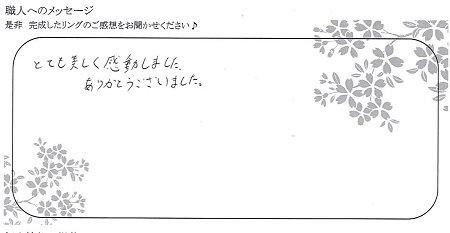 職人へのメッセージ
是非 完成したリングのご感想をお聞かせください♪
とても美しく感動しました。
ありがとうございました。